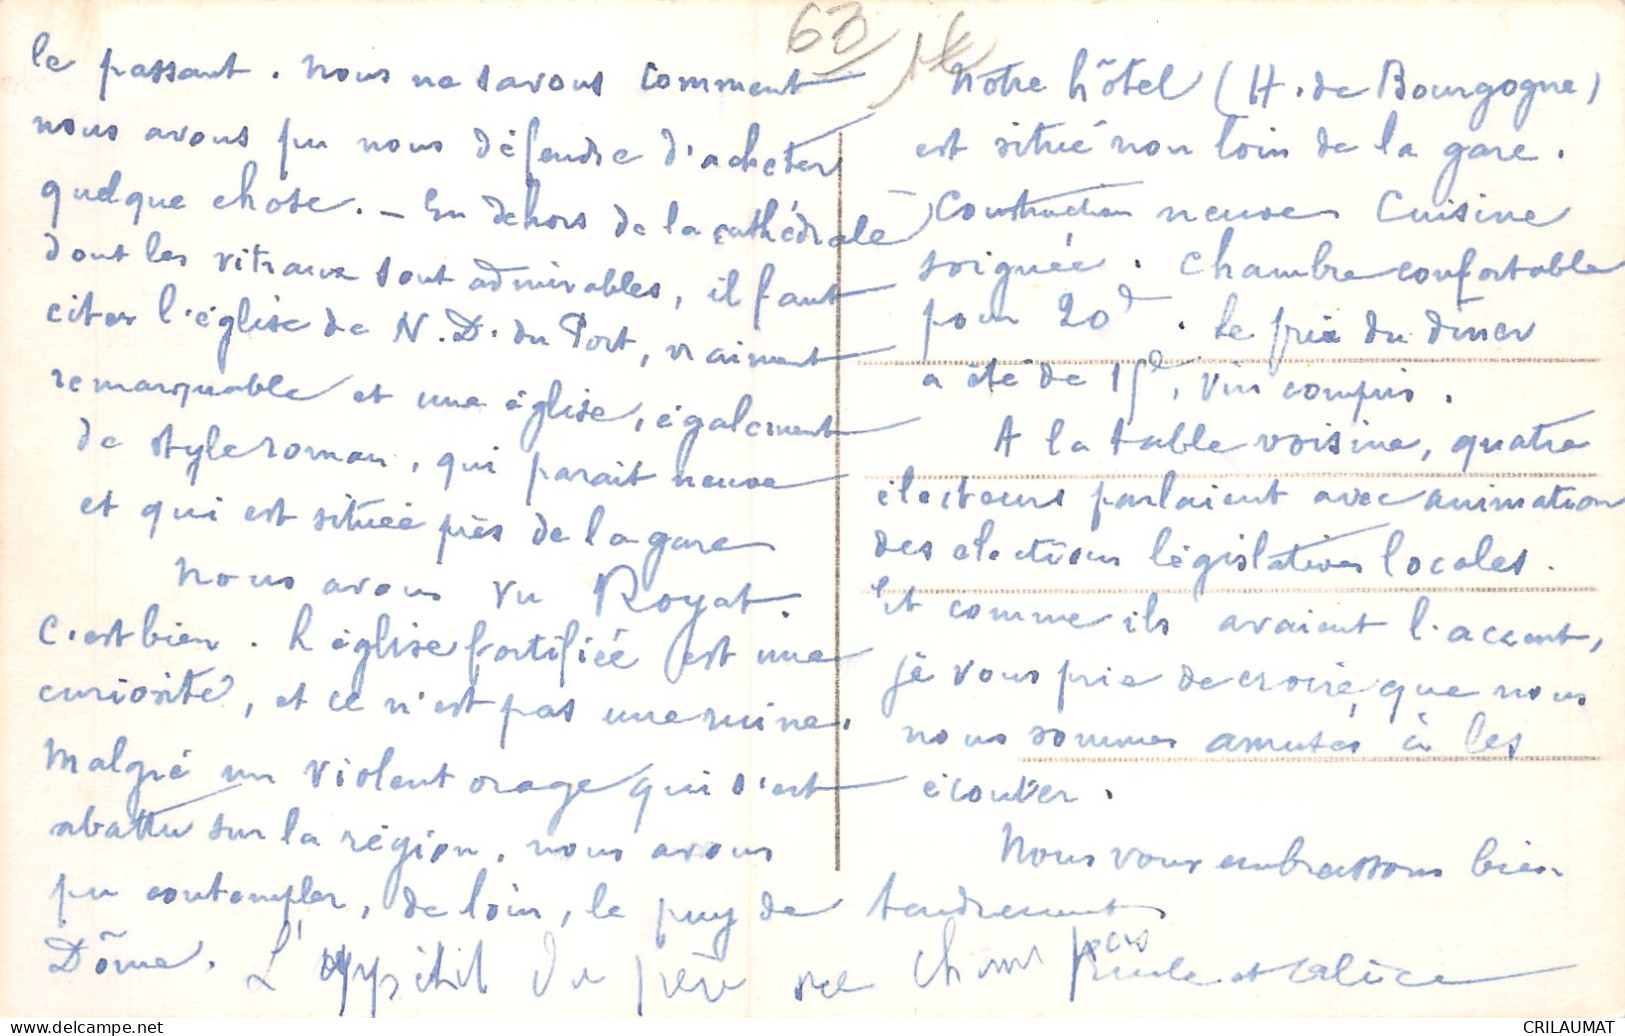 63
le passant. Nous ne savons comment
nous avons pu nous défendre d'acheter
quelque chose. - En dehors de la cathédrale
dont les vitraux sont admirables, il faut
citer l'église de N.D. du Port, vraiment
remarquable et une église, également
de style roman, qui parait neuve
et qui est située près de la gare
Nous avons vu Royat.
C'est bien. L'église fortifiée est une
curiosité, et ce n'est pas une ruine.
Malgré un violent orage qui s'est
abattu sur la région, nous avons
pu contempler, de loin, le puy de
Dôme. L'appétit du père
Notre hôtel (H. de Bourgogne)
est situé non loin de la gare.
Construction neuve Cuisine
soignée. Chambre confortable
pour 20. Le prix du diner
a été de 15, vin compris.
A la table voisine, quatre
électeurs parlaient avec animation
des élections législatives locales.
Et comme ils avaient l'accent,
je vous prie de croire que nous
nous sommes amusés à les
écouter.
Nous vous embrassons bien
tendrement
et Alice
CRILAUMAT